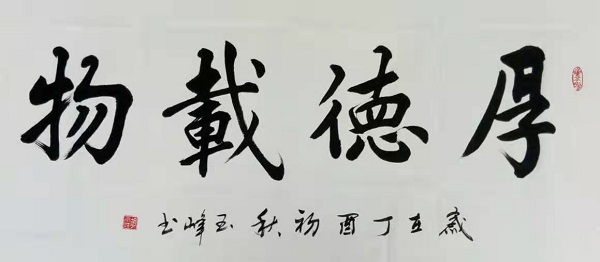 厚德載物
歲在丁酉初秋玉峰书